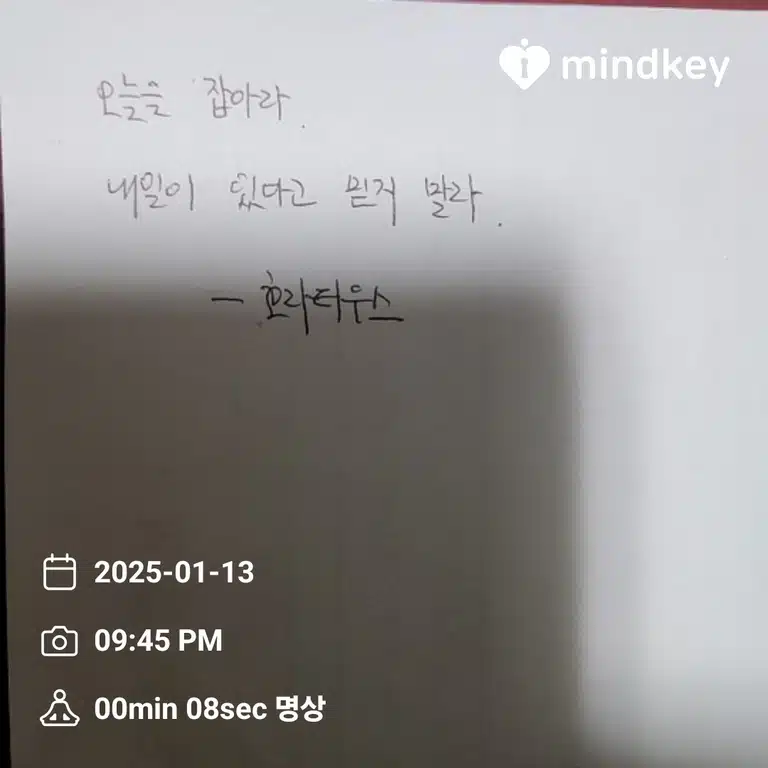 mindkey
오늘을 잡아라.
내일이 있다고 믿지 말라.
- 호라티우스
2025-01-13
09:45 PM
00min 08sec 명상